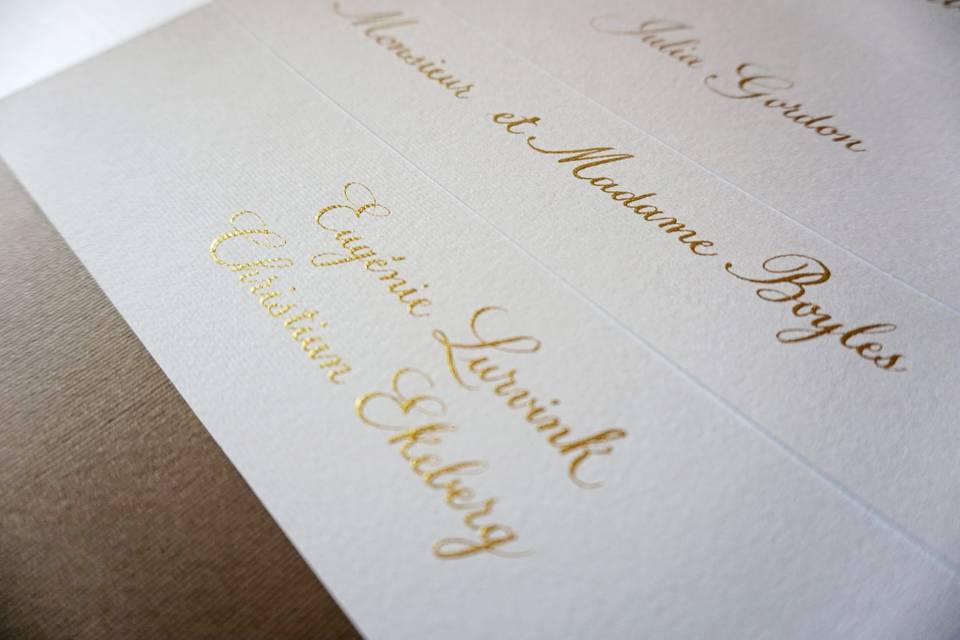 Julia Gordon
Monsieur et Madame Boyles
Eugénie Lurvink
Christian Ekeberg